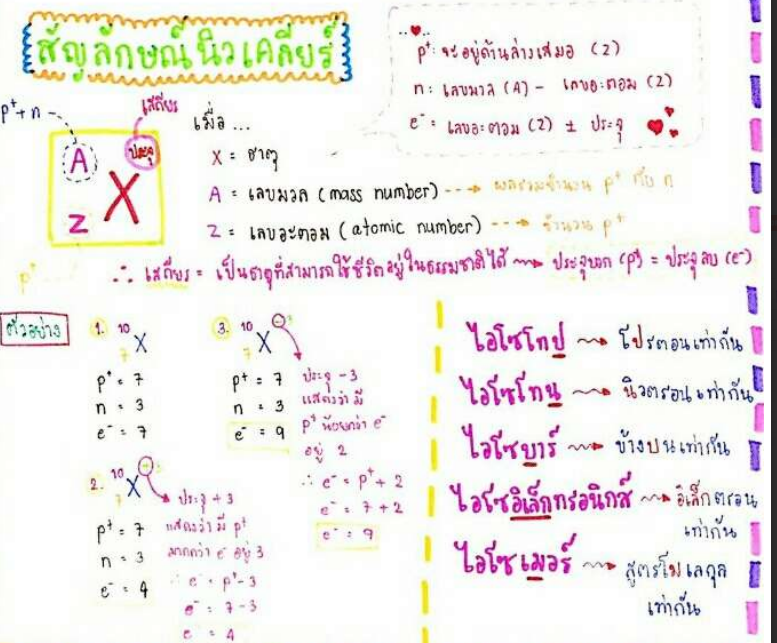 สัญลักษณ์นิวเคลียร์
p⁺ จะอยู่ด้านล่างเสมอ (Z)
n : เลขมวล (A) - เลขอะตอม (Z)
e⁻ = เลขอะตอม (Z) ± ประจุ
เสถียร
p⁺ + n
A
ประจุ
X
Z
p⁺
เมื่อ ...
X = ธาตุ
A = เลขมวล (mass number) ---→ ผลรวมจำนวน p⁺ กับ n
Z = เลขอะตอม (atomic number) ---→ จำนวน p⁺
∴ เสถียร = เป็นธาตุที่สามารถใช้ชีวิตอยู่ในธรรมชาติได้ ~~→ ประจุบวก (p⁺) = ประจุลบ (e⁻)
ตัวอย่าง
1. 10
7 X
p⁺ = 7
n = 3
e⁻ = 7
2. 10
7 X
p⁺ = 7
n = 3
e⁻ = 4
ประจุ +3
แสดงว่า มี p⁺
มากกว่า e⁻ อยู่ 3
∴ e⁻ = p⁺ - 3
e⁻ = 7 - 3
e⁻ = 4
3. 10
7 X
p⁺ = 7
n = 3
e⁻ = 9
ประจุ -3
แสดงว่า มี
p⁺ น้อยกว่า e⁻
อยู่ 2
∴ e⁻ = p⁺ + 2
e⁻ = 7 + 2
e⁻ = 9
ไอโซโทป ~~→ โปรตอนเท่ากัน
ไอโซโทน ~~→ นิวตรอนเท่ากัน
ไอโซบาร์ ~~→ ข้างบนเท่ากัน
ไอโซอิเล็กทรอนิกส์ ~~→ อิเล็กตรอน
เท่ากัน
ไอโซเมอร์ ~~→ สูตรโมเลกุล
เท่ากัน